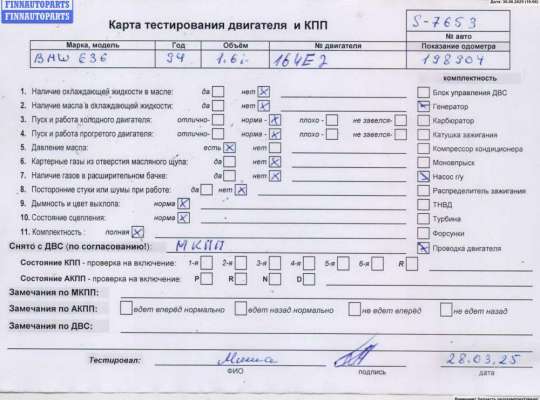 FINNAUTOPARTS
FINNAUTOPARTS
Карта тестирования двигателя и КПП
S-7653
№ авто
Марка, модель Год Объём № двигателя Показание одометра
BMW E36 94 1.6i 164E2 198904
комплектность
1. Наличие охлаждающей жидкости в масле: да нет
Блок управления ДВС
2. Наличие масла в охлаждающей жидкости: да нет
Генератор
3. Пуск и работа холодного двигателя: отлично- норма - плохо - не завелся-
Карбюратор
4. Пуск и работа прогретого двигателя: отлично- норма - плохо - не завелся-
Катушка зажигания
5. Давление масла: есть нет
Компрессор кондиционера
6. Картерные газы из отверстия масляного щупа: да нет
Моновпрыск
7. Наличие газов в расширительном бачке: да нет
Насос г/у
8. Посторонние стуки или шумы при работе: да нет
Распределитель зажигания
9. Дымность и цвет выхлопа: норма
ТНВД
10. Состояние сцепления: норма
Турбина
11. Комплектность : полная
Форсунки
Снято с ДВС (по согласованию!): МКПП
Проводка двигателя
Состояние КПП - проверка на включение: 1-я 2-я 3-я 4-я 5-я 6-я R
Состояние АКПП - проверка на включение: P R N D
Замечания по МКПП:
Замечания по АКПП: едет вперёд нормально едет назад нормально не едет вперёд не едет назад
Замечания по ДВС:
Тестировал: 28.03.25
ФИО подпись дата